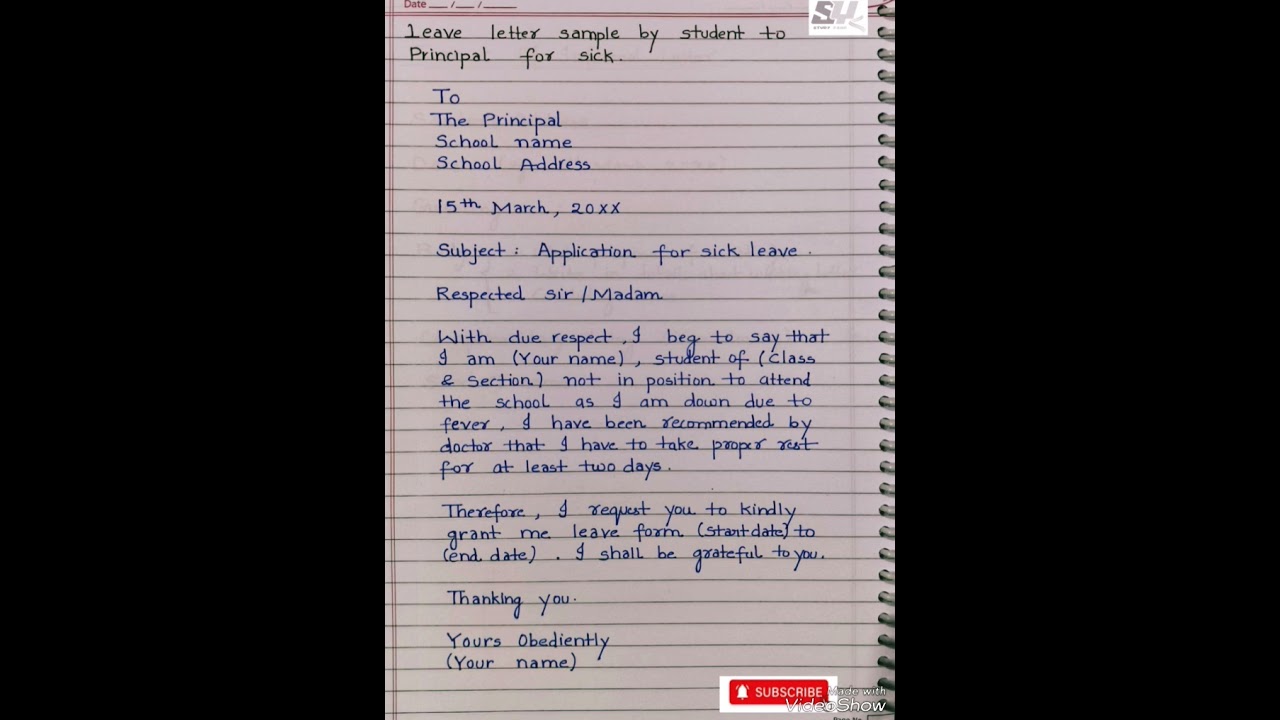 Date ___ /___ /_____
SY
Leave letter sample by student to
Principal for sick.
To
The Principal
School name
School Address
15th March, 20XX
Subject : Application for sick leave .
Respected Sir / Madam
With due respect, I beg to say that
I am (Your name), student of (Class
& Section) not in position to attend
the school as I am down due to
fever, I have been recommended by
doctor that I have to take proper rest
for at least two days.
Therefore, I request you to kindly
grant me leave form (Start date) to
(end date) . I shall be grateful to you.
Thanking you.
Yours Obediently
(Your name)
SUBSCRIBE
Made with
VideoShow
Page No.